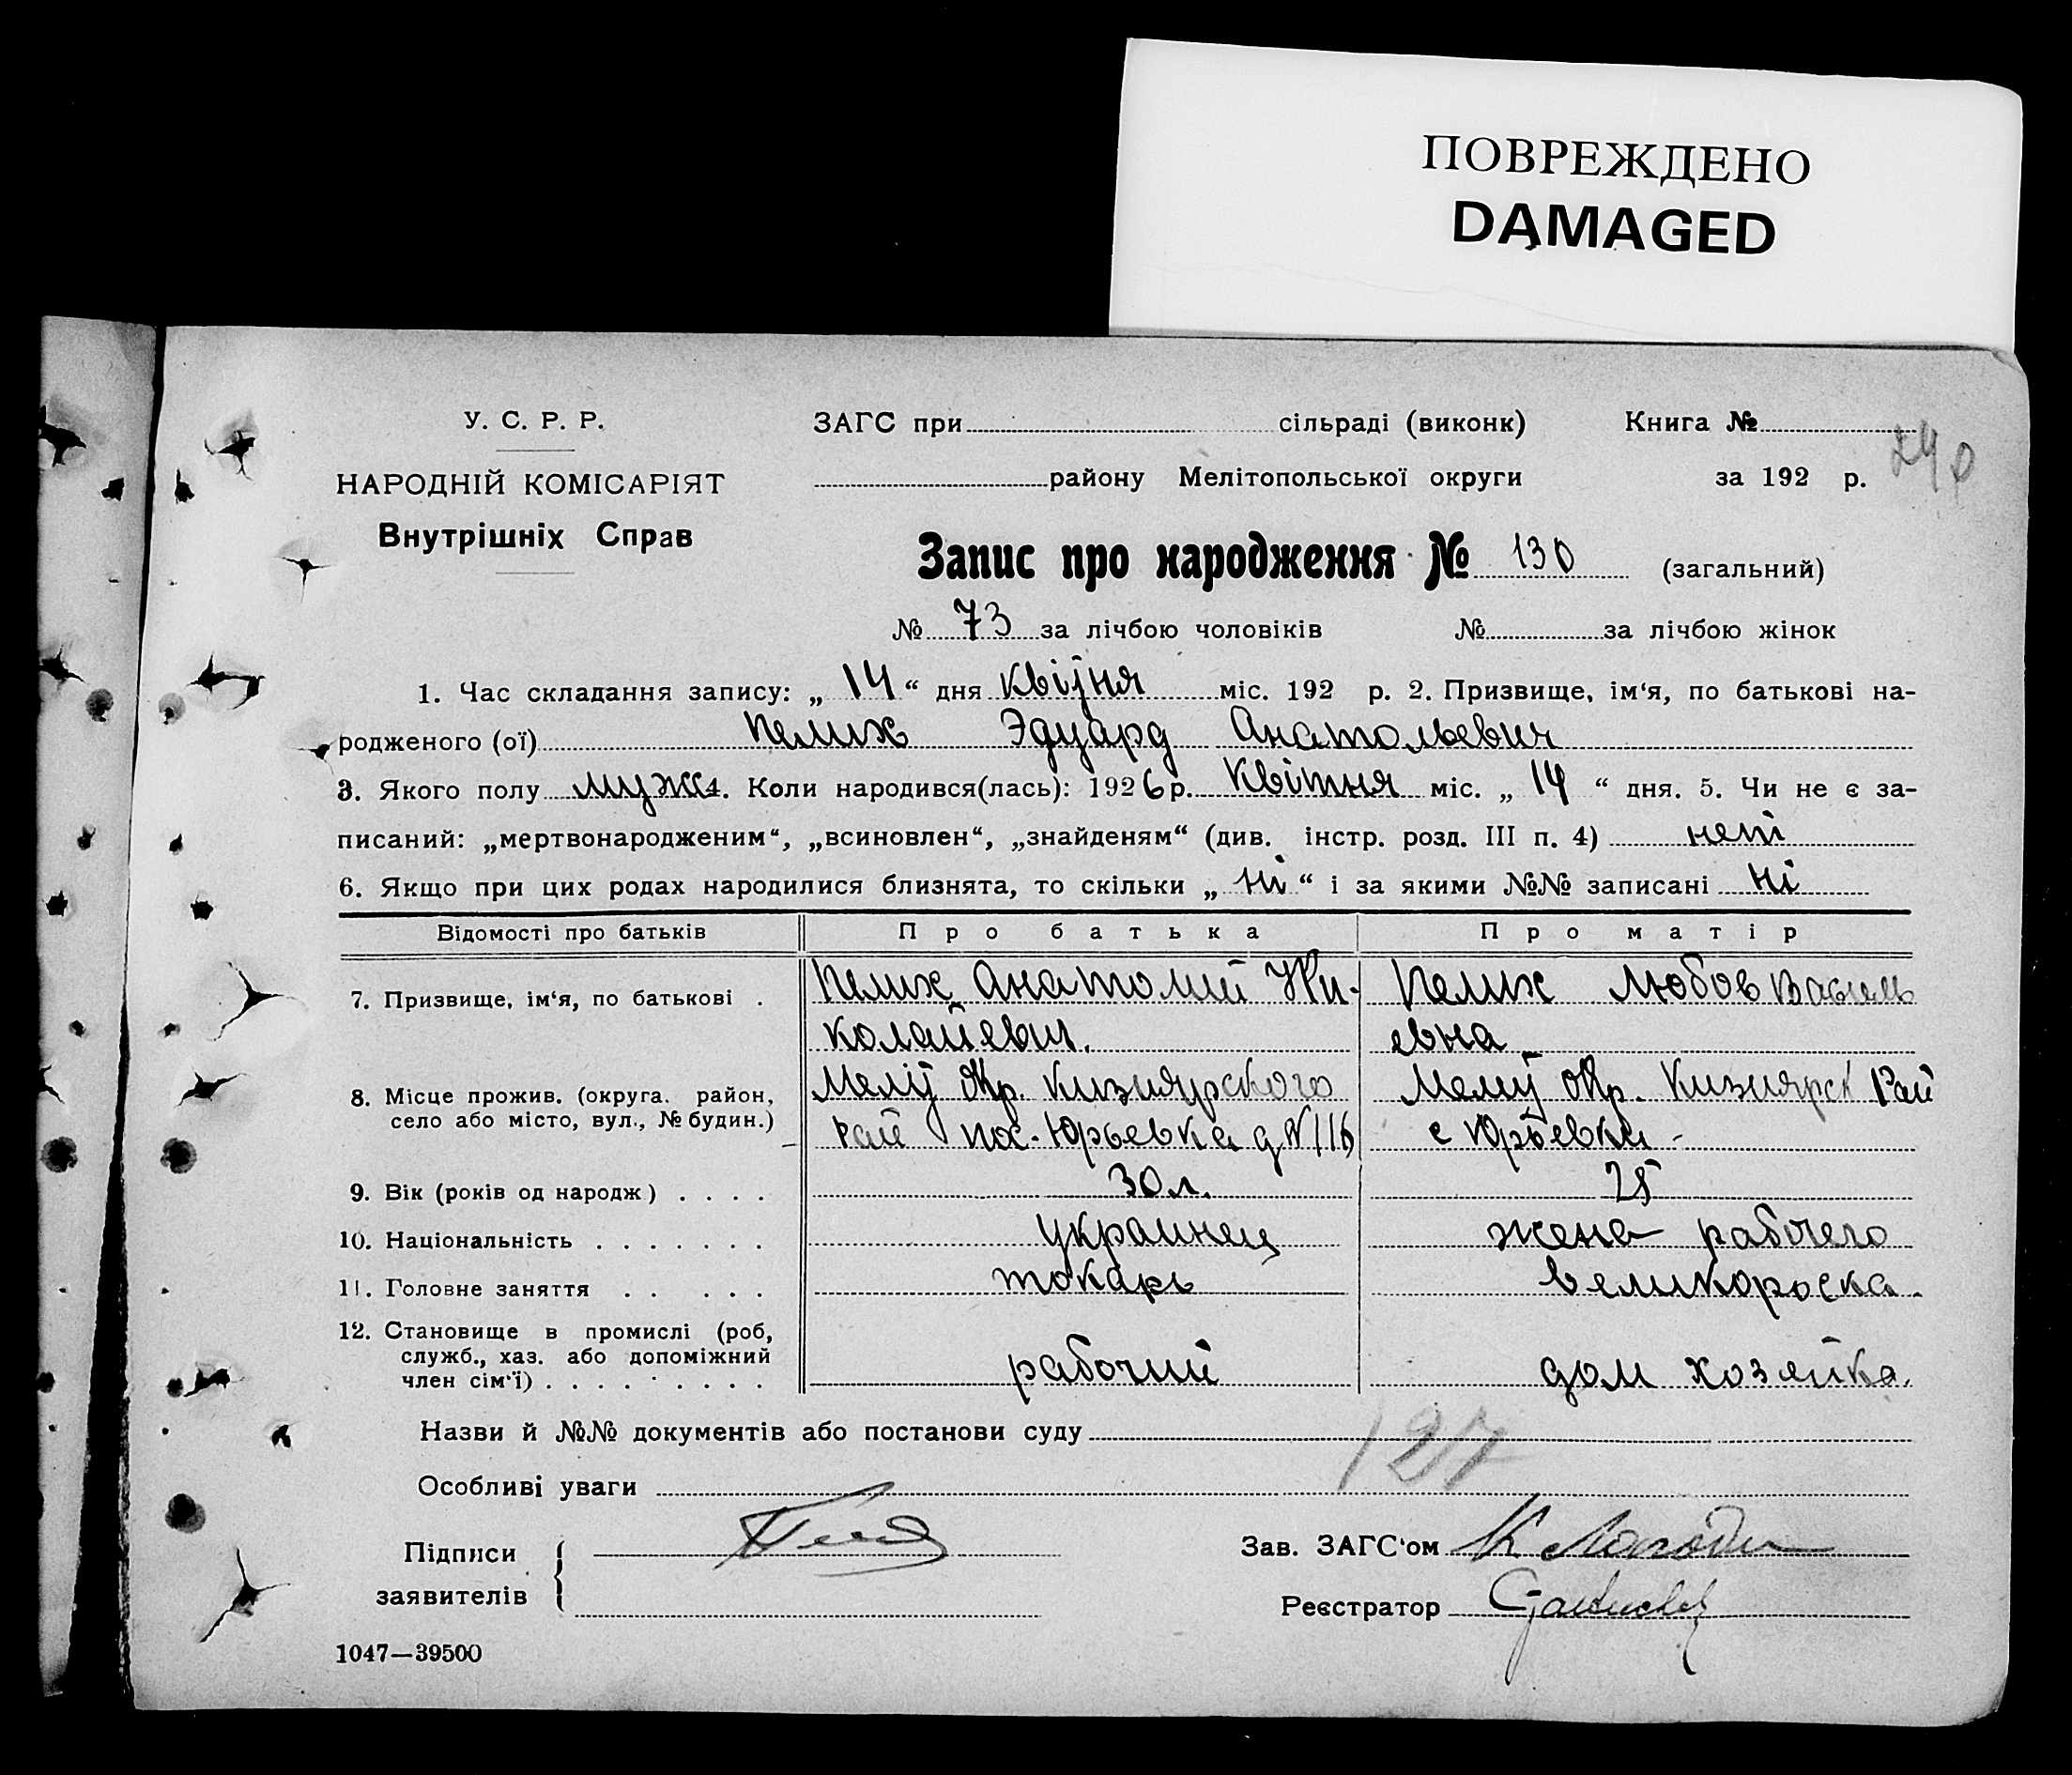 ПОВРЕЖДЕНО
DAMAGED
У. С. Р. Р.
НАРОДНІЙ КОМІСАРІЯТ
Внутрішніх Справ
ЗАГС при сільраді (виконк) Книга №
району Мелітопольської округи за 192 р.
Запис про народження № 130 (загальний)
№ 73 за лічбою чоловіків № за лічбою жінок
1. Час складання запису: „ 14 “ дня квітня міс. 192 р. 2. Призвище, ім‘я, по батькові на-
родженого (ої) Пелих Эдуард Анатольевич
3. Якого полу мужс 4. Коли народився(лась): 1926 р. Квітня міс. „ 14 “ дня. 5. Чи не є за-
писаний: „мертвонародженим“, „всиновлен“, „знайденям“ (див. інстр. розд. III п. 4) нет
6. Якщо при цих родах народилися близнята, то скільки „ ні “ і за якими №№ записані ні
Відомості про батьків Про батька Про матір
7. Призвище, ім‘я, по батькові . Пелих Анатолий Ни- Пелих Любов Василь
колайевич. евна
8. Місце прожив. (округа. район, Меліт окр. Кизиярского Меліт окр. Кизиярск Рай
село або місто, вул., № будин.) рай пос. Юрьевка д № 116 с Юрьевка -
9. Вік (років од народж) . . . . 30 л. 25
10. Національність . . . . . . . украинец жена рабочего
11. Головне заняття . . . . . токарь великороска.
12. Становище в промислі (роб,
служб., хаз. або допоміжний
член сім‘ї) . . . . . . . . . рабочий дом хозяйка.
Назви й №№ документів або постанови суду
127
Особливі уваги
Підписи
заявителів
Зав. ЗАГС‘ом
Реєстратор
1047—39500